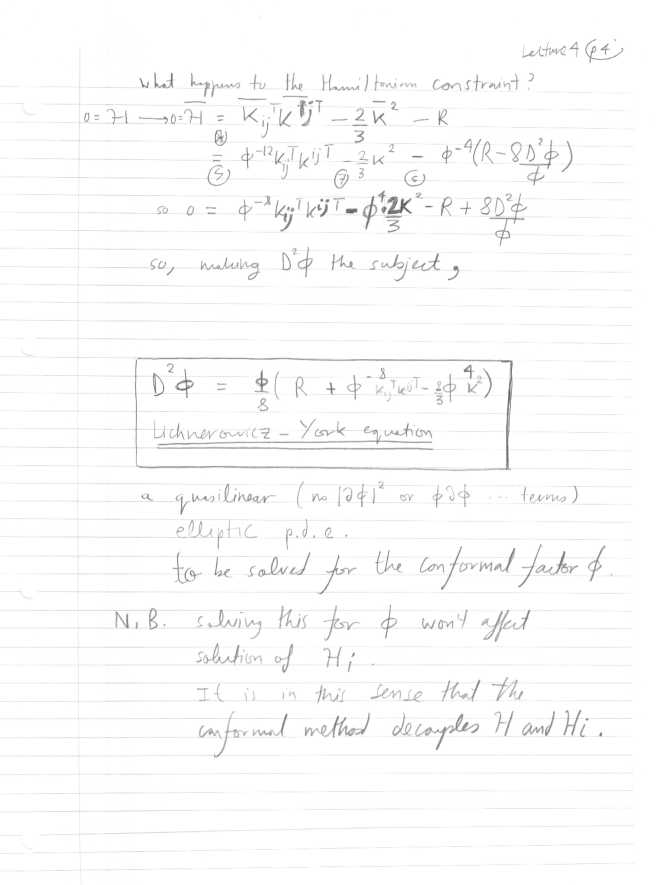 Lecture 4 p4
What happens to the Hamiltonian constraint?
0 = H → 0 = H̄ = K̄ᵢⱼᵀ K̄ⁱʲᵀ − 2/3 K̄² − R̄
= φ⁻¹² Kᵢⱼᵀ Kⁱʲᵀ − 2/3 K² − φ⁻⁴(R − 8D²φ/φ)
(5) (7) (6)
so 0 = φ⁻⁸ Kᵢⱼᵀ Kⁱʲᵀ − φ⁴ 2K²/3 − R + 8D²φ/φ
so, making D²φ the subject,
D²φ = φ/8 ( R + φ⁻⁸ Kᵢⱼᵀ Kⁱʲᵀ − 2/3 φ⁴ K² )
Lichnerowicz – York equation
a quasilinear (no |∂φ|² or φ∂φ ... terms)
elliptic p.d.e.
to be solved for the conformal factor φ.
N.B. solving this for φ won't affect
solution of Hi.
It is in this sense that the
conformal method decouples H and Hi.